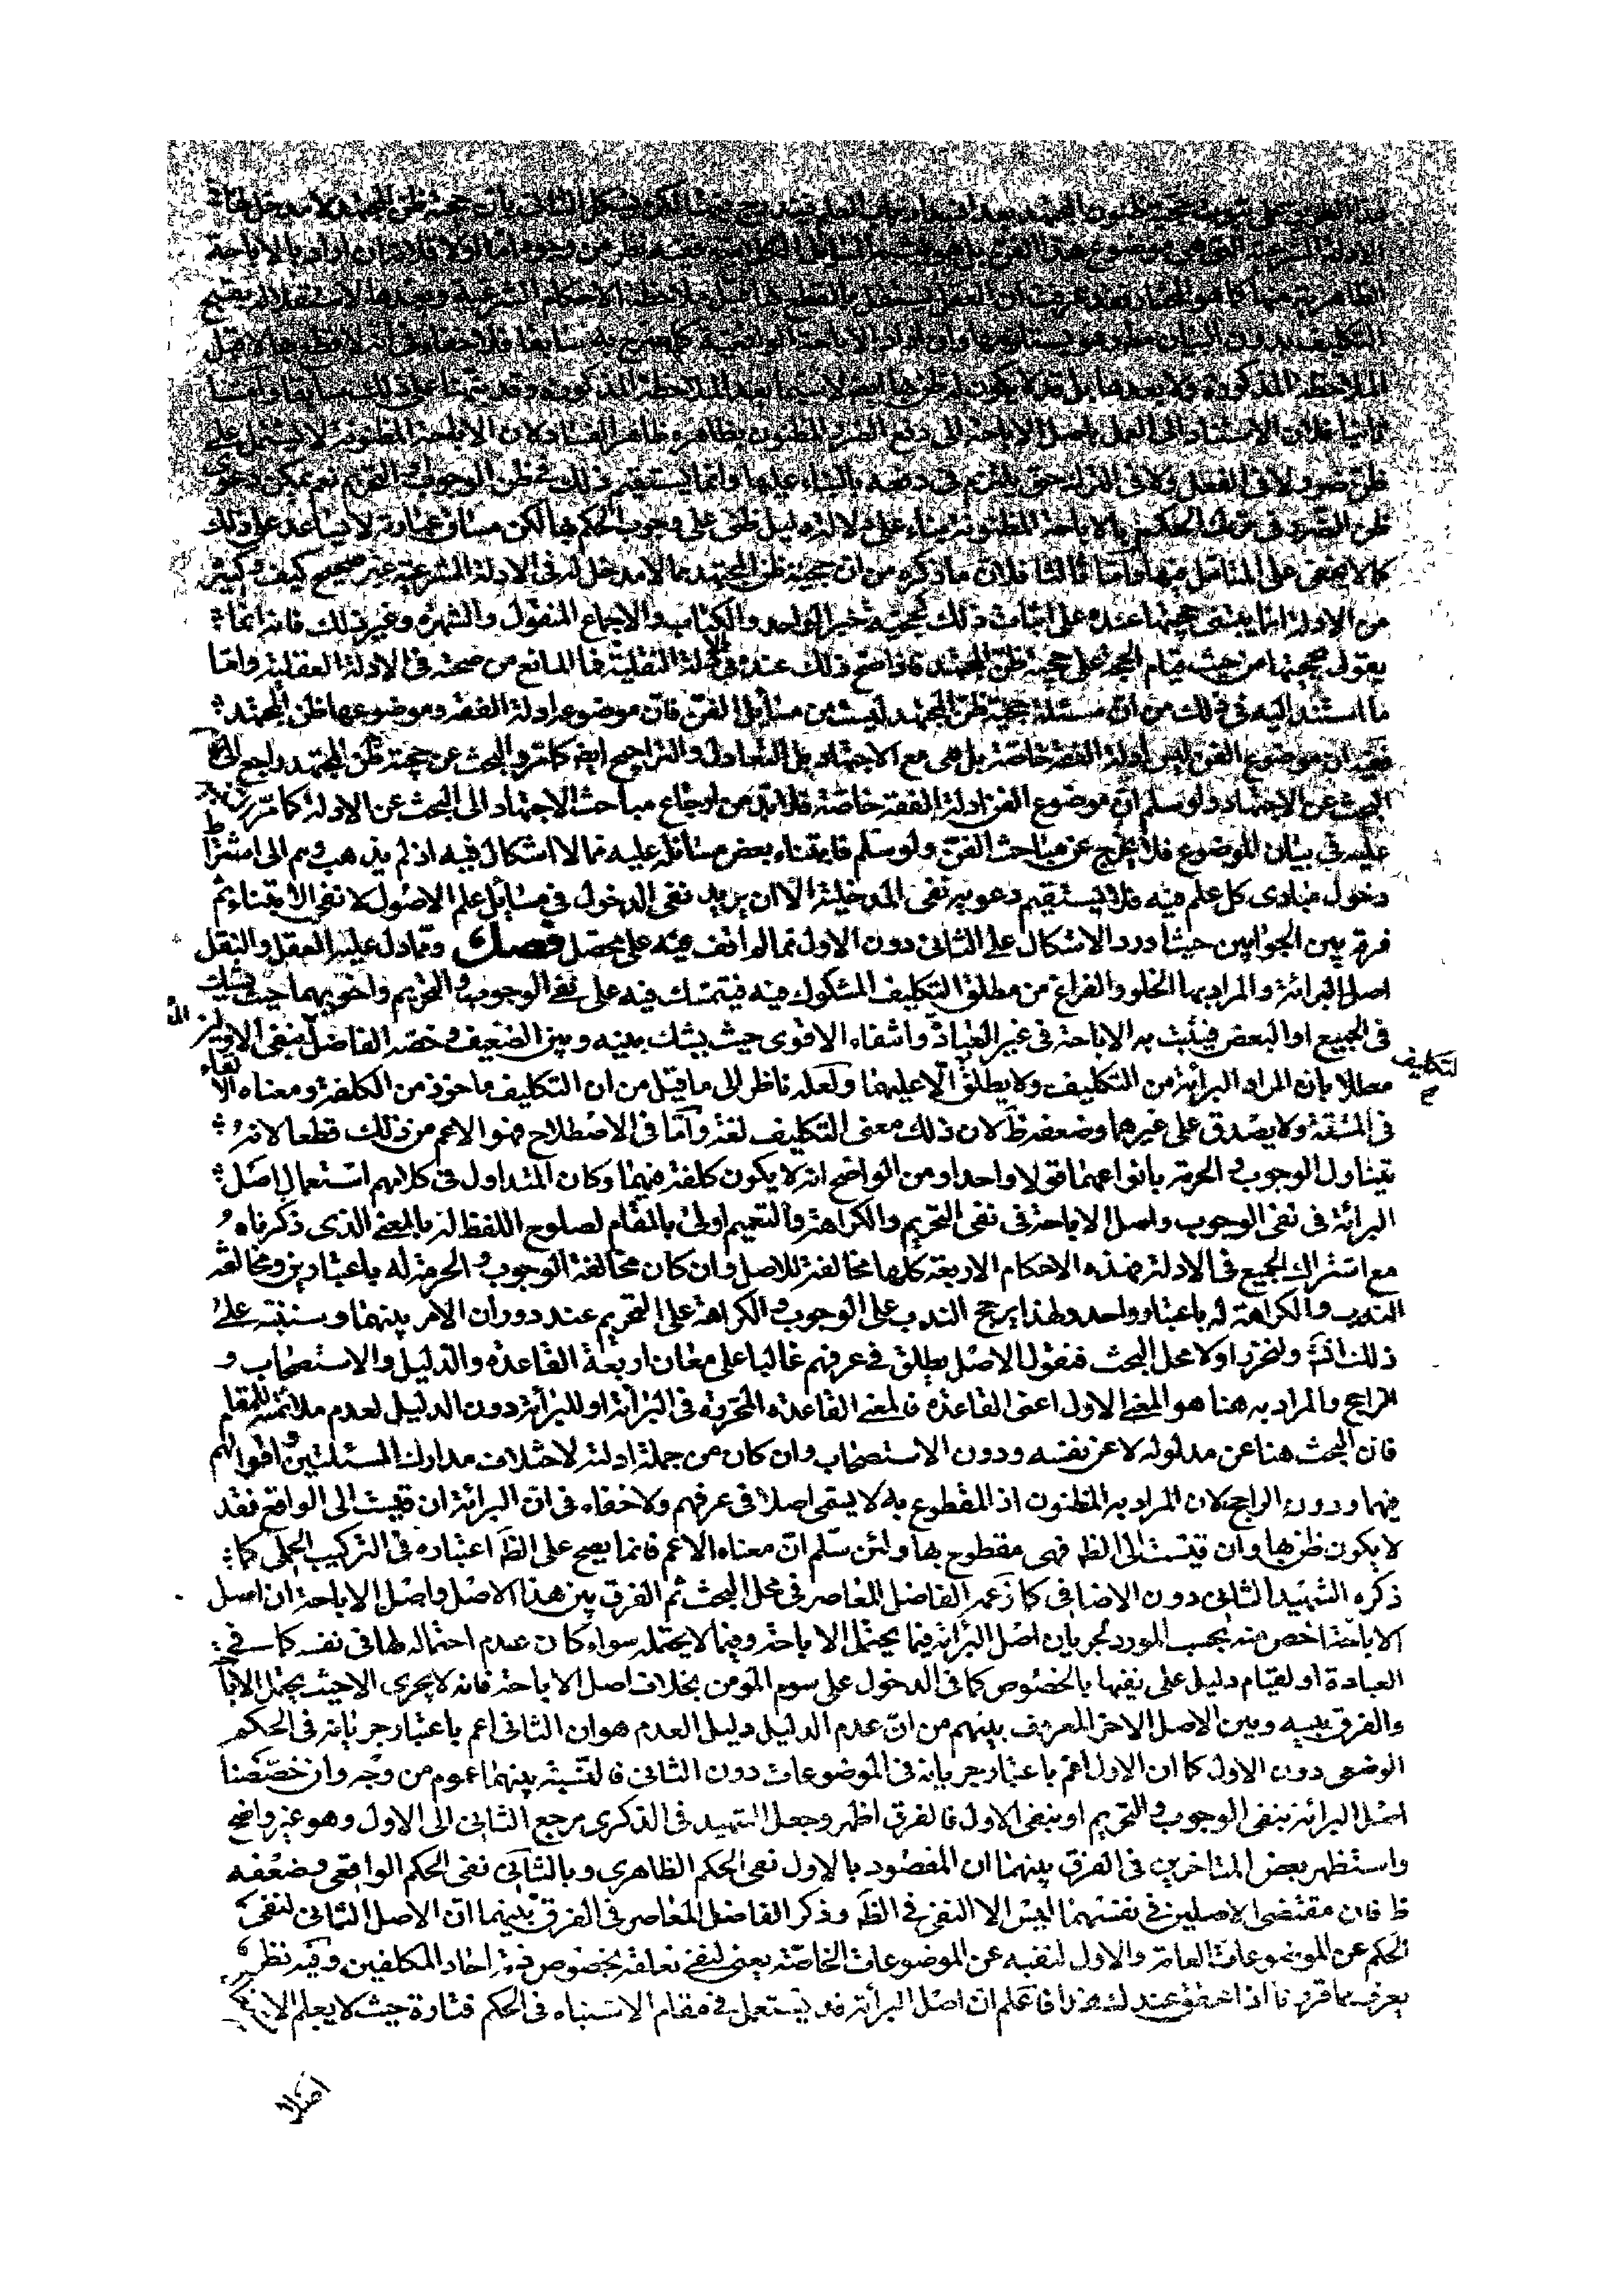 الظاهرية منها كما هو المختار فقد عرفت ان العقل يستقل بالقطع بها قبل ملاحظة الاحكام الشرعية وبعدها لاستقلاله بقبح
التكليف بدون البيان مطلقا وهو يستلزمها وان اراد الاباحة الواقعية كما صرح به سابقا فلا خفاء فى انه لا قطع بها لا قبل
الملاحظة المذكورة ولا بعدها بل قد لا يكون ظن بها ايضا لا سيما بعد الملاحظة المذكورة وقد نبهنا على ذلك سابقا واما
ثانيا فلان الاستناد الى العمل باصل الاباحة الى دفع الضرر المظنون بظاهره ظاهر الفساد لان الاباحة المظنونة لا يشتمل على
ظن ضرر لا فى الفعل ولا فى الترك حتى يلتزم فى دفعه بالبناء عليها وانما يستقيم ذلك فى ظن الوجوب و التحريم نعم يمكن دعوى
ظن الضرر فى ترك الحكم بالاباحة المظنونة بناء على دلالة دليل ظنى على وجوب الحكم بها لكن مساق عبارته لا يساعد على ذلك
كما لا يخفى على المتامل فيها واما ثالثا فلان ما ذكره من ان حجية ظن المجتهد مما لا مدخل له فى الادلة الشرعية غير صحيح كيف وكثير
من الادلة انما يبتنى حجيتها عنده على اثبات ذلك كحجية خبر الواحد والكتاب والاجماع المنقول والشهرة وغير ذلك فانه انما
يقول بحجيتها من حيث قيام الحجة على حجية ظن المجتهد فاذا صح ذلك عنده فى الادلة النقلية فما المانع من صحته فى الادلة العقلية واما
ما استند اليه فى ذلك من ان مسئلة حجية ظن المجتهد ليست من مسائل الفن فان موضوعه ادلة الفقه وموضوعها ظن المجتهد
ففيه ان موضوع الفن ليس ادلة الفقه خاصة بل هى مع الاجتهاد بل التعادل والتراجيح ايضا كما مر والبحث عن حجية ظن المجتهد راجع الى
البحث عن الاجتهاد ولو سلم ان موضوع الفن ادلة الفقه خاصة فلا بد من ارجاع مباحث الاجتهاد الى البحث عن الادلة كما مر
عليه فى بيان الموضوع فلا يخرج عن مباحث الفن ولو سلم فابتناء بعض مسائله عليه مما لا اشكال فيه اذ لم يذهب وهم الى اشتراط
دخول مبادى كل علم فيه فلا يستقيم دعويه نفى المدخلية الا ان يريد نفى الدخول فى مسايل علم الاصول لا نفى الابتناء ثم
فرقه بين الجوابين حيث اورد الاشكال على الثانى دون الاول مما لم اقف فيه على محصل فصل ومما دل عليه العقل والنقل
اصل البرائة والمراد بها الخلو والفراغ من مطلق التكليف المشكوك فيه فيتمسك فيه على نفى الوجوب و التحريم واخويهما حيث يشك
فى الجميع او البعض فيثبت به الاباحة فى غير العبادة وانتفاء الاقوى حيث يشك بينه وبين الضعيف وخصه الفاضل بنفى الاولين
معللا بان المراد البرائة من التكليف ولا يطلق التكليف الا عليهما ولعله ناظر الى ما قيل من ان التكليف ماخوذ من الكلفة ومعناه الالقاء
فى المشقة ولا يصدق على غيرهما وضعفه ظ لان ذلك معنى التكليف لغة واما فى الاصطلاح فهو الاعم من ذلك قطعا لانه
يتناول الوجوب و الحرمة بانواعهما قولا واحدا ومن الواضح انه لا يكون كلفة فيهما وكان المتداول فى كلامهم استعمال اصل
البرائة فى نفى الوجوب واصل الاباحة فى نفى التحريم والكراهة والتعميم اولى بالمقام لصلوح اللفظ له بالمعنى الذى ذكرناه و
مع اشتراك الجميع فى الادلة فهذه الاحكام الاربعة كلها مخالفة للاصل وان كان مخالفة الوجوب و الحرمة له باعتبارين ومخالفة
الندب والكراهة له باعتبار واحد ولهذا يرجح الندب على الوجوب و الكراهة على التحريم عند دوران الامر بينهما وسننبه على
ذلك انشا ولنحرر اولا محل البحث فنقول الاصل يطلق فى عرفهم غالبا على معان اربعة القاعدة والدليل والاستصحاب و
الراجح والمراد به هنا هو المعنى الاول اعنى القاعدة فالمعنى القاعدة المحررة فى البرائة او للبرائة دون الدليل لعدم ملائمته للمقام
فان البحث هنا عن مدلوله لا عن نفسه ودون الاستصحاب وان كان من جملة ادلته لاختلاف مدارك المسئلتين واقوالهم
فيهما ودون الراجح لان المراد به المظنون اذ المقطوع به لا يسمى اصلا فى عرفهم ولا خفاء فى ان البرائة ان قيست الى الواقع فقد
لا يكون ظن بها وان قيست الى الظ فهى مقطوع بها ولئن سلم ان معناه الاعم فانما يصح على الظ اعتباره فى التركيب الحملى كما
ذكره الشهيد الثانى دون الاضافى كما زعمه الفاضل المعاصر فى محل البحث ثم الفرق بين هذا الاصل واصل الاباحة ان اصل
الاباحة اخص منه بحسب المورد لجريان اصل البرائة فيما يحتمل الاباحة وفيما لا يحتمله سواء كان عدم احتماله لها فى نفسه كما فى
العبادة او لقيام دليل على نفيها بالخصوص كما فى الدخول على سوم المؤمن بخلاف اصل الاباحة فانه لا يجرى الا حيث يحتمل الاباحة
والفرق بينه وبين الاصل الاخر المعروف بينهم من ان عدم الدليل دليل العدم هو ان الثانى اعم باعتبار جريانه فى الحكم
الوضعى دون الاول كما ان الاول اعم باعتبار جريانه فى الموضوعات دون الثانى فالنسبة بينهما عموم من وجه وان خصصنا
اصل البرائة بنفى الوجوب و التحريم او بنفى الاول فالفرق اظهر وجعل الشهيد فى الذكرى مرجع الثانى الى الاول وهو غير واضح
واستظهر بعض المتاخرين فى الفرق بينهما ان المقصود بالاول نفى الحكم الظاهرى وبالثانى نفى الحكم الواقعى وضعفه
ظ فان مقتضى الاصلين فى نفسهما ليس الا النفى فى الظ وذكر الفاضل المعاصر فى الفرق بينهما ان الاصل الثانى لنفى
الحكم عن الموضوعات العامة والاول لنفيه عن الموضوعات الخاصة يعنى لنفى تعلقه بخصوص ذمة احاد المكلفين وفيه نظر
يعرف مما قررنا اذا تحقق عندك هذا فاعلم ان اصل البرائة قد يستعمل فى مقام الاشتباه فى الحكم فتارة حيث لا يعلم الا
اصلا